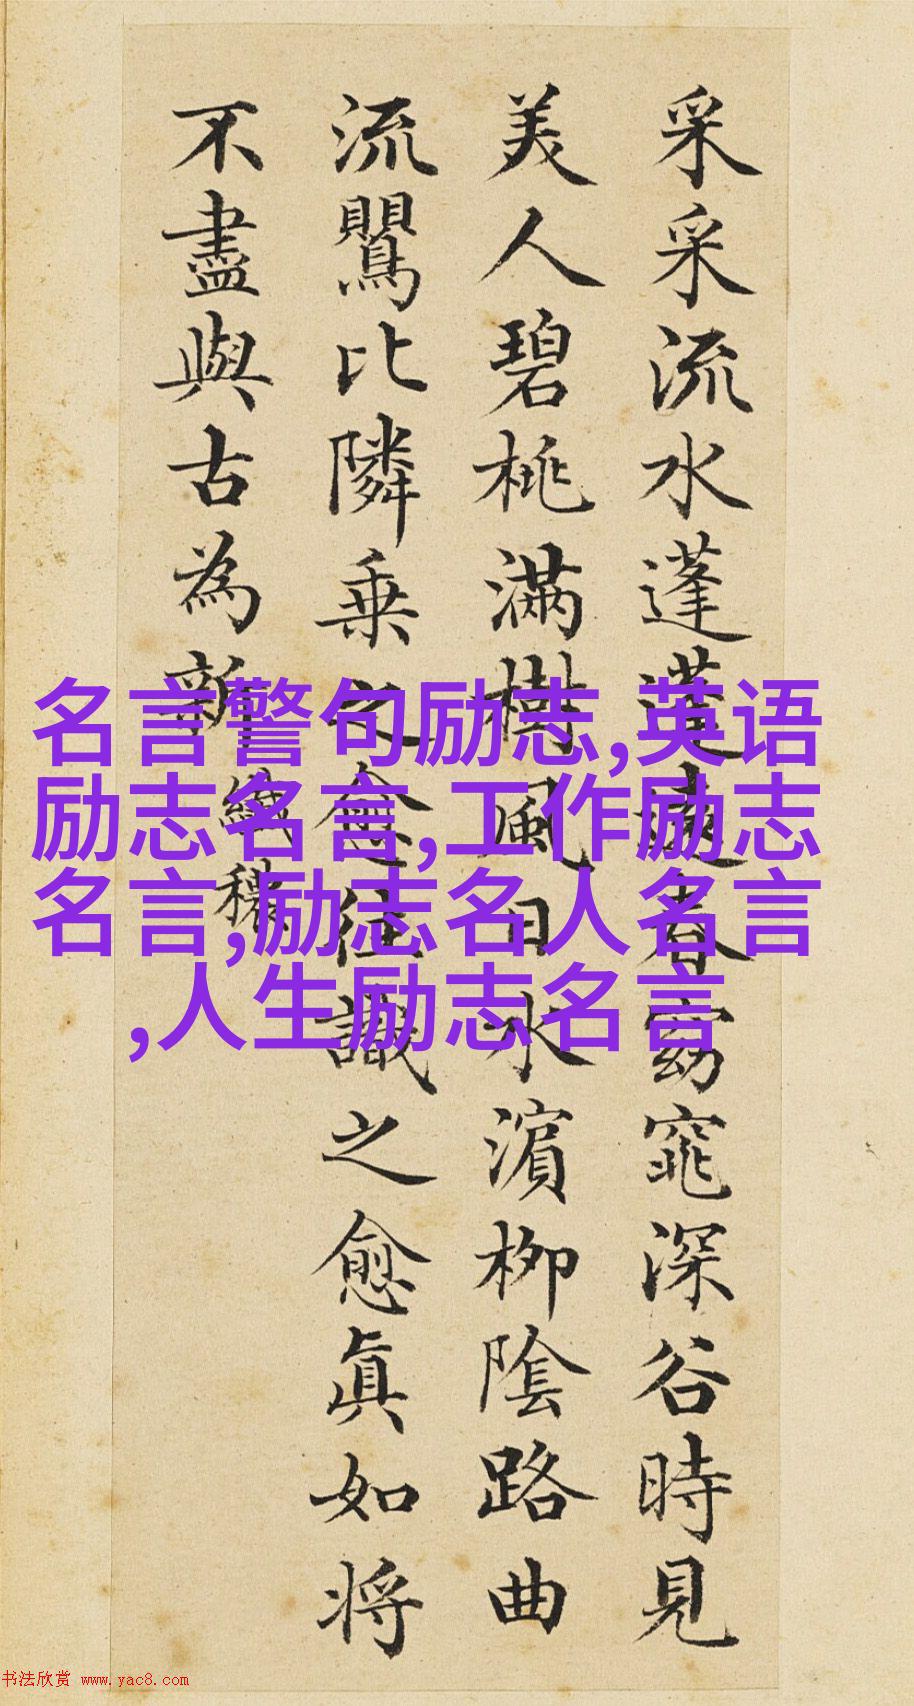 采采流水蓬蓬遠春窈窕深谷時見
美人碧桃滿樹風日水濵柳陰路曲
流鸎比隣乗之愈往識之愈眞如将
不盡與古為新
纖穠
名言警句励志,英语
励志名言,工作励志
名言,励志名人名言
,人生励志名言
书法欣赏 www.yac8.com